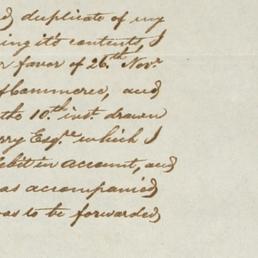 duplicate of my
ing it's contents, I
favor of 26.th Nov.r
Commerce, and
the 10.th inst. drawn
rry Esq.re which I
debit in account, and
as accompanied
was to be forwarded